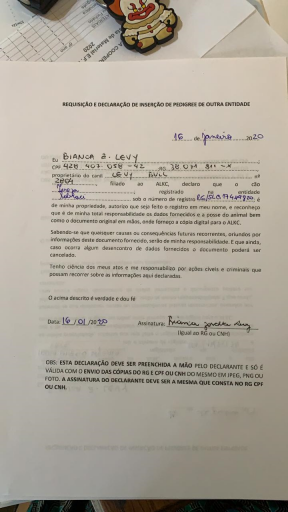 REQUISIÇÃO E DECLARAÇÃO DE INSERÇÃO DE PEDIGREE DE OUTRA ENTIDADE
16 de Janeiro 2020
Eu BIANCA Z. LEVY
proprietário do canil LEVY BULL nº
2804 filiado ao ALKC, declaro que o cão
registrado na entidade
sob o número de registro é
de minha propriedade, autorizo que seja feito o registro em meu nome, e reconheço
que é de minha total responsabilidade os dados fornecidos e a posse do animal bem
como o documento original em mãos, onde forneço a cópia digital para o ALKC.
Sabendo-se que quaisquer causas ou consequências futuras recorrentes, oriundos por
informações deste documento fornecido, serão de minha responsabilidade. E que ainda,
caso ocorra algum desencontro de dados fornecidos o documento poderá ser
cancelado.
Tenho ciência dos meus atos e me responsabilizo por ações cíveis e criminais que
possam recorrer sobre as informações aqui declaradas.
O acima descrito é verdade e dou fé
Data: 16/01/2020 Assinatura:
(Igual ao RG ou CNH)
OBS: ESTA DECLARAÇÃO DEVE SER PREENCHIDA A MÃO PELO DECLARANTE E SÓ É
VÁLIDA COM O ENVIO DAS CÓPIAS DO RG E CPF OU CNH DO MESMO EM JPEG, PNG OU
FOTO. A ASSINATURA DO DECLARANTE DEVE SER A MESMA QUE CONSTA NO RG CPF
OU CNH.